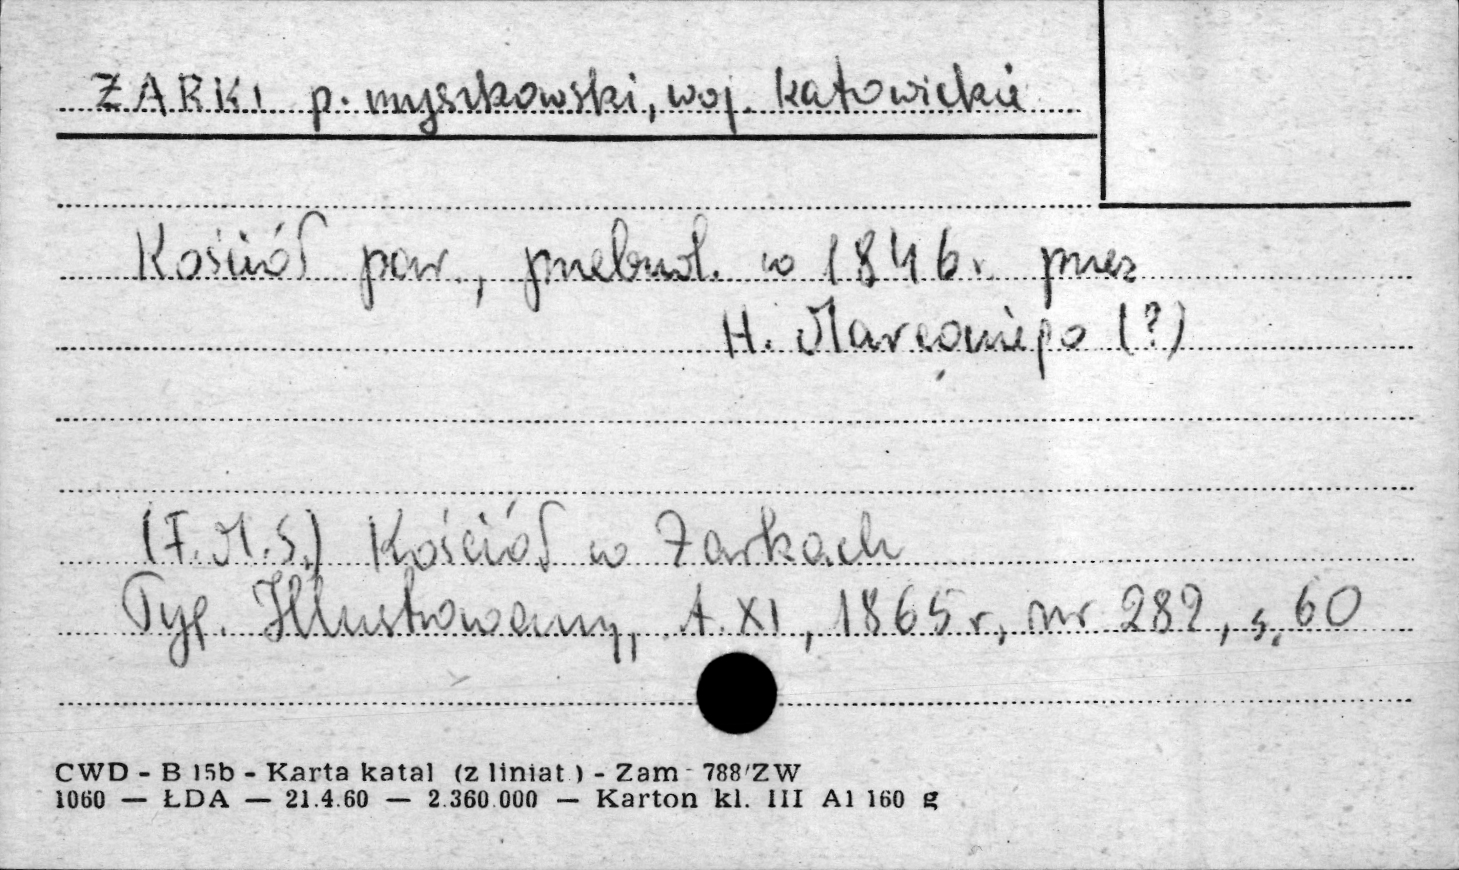 ŻARKI p. myszkowski, woj. katowickie
Kościół par., przebud. w 1846 r. przez
H. Marconiego (?)
(F.M.S.) Kościół w Żarkach
Tyg. Illustrowany, t. XI, 1865 r, nr 282, s. 60
CWD - B 15b - Karta katal (z liniat.) - Zam - 788/ZW
1060 — ŁDA — 21.4.60 — 2.360.000 — Karton kl. III A1 160 g